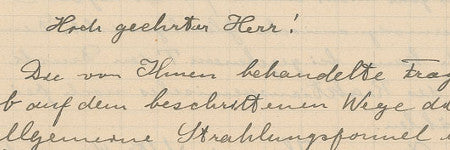 Hoch geehrter Herr!
Die von Ihnen behandelte Frag
b auf dem beschrittenen Wege di
llgemeine Strahlungsformel